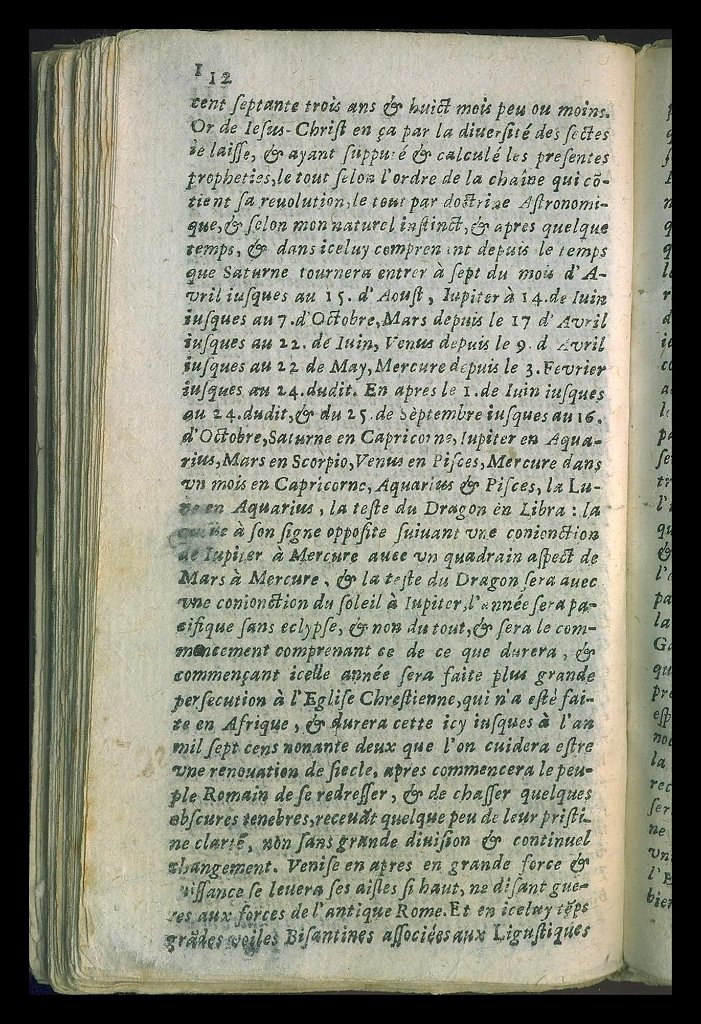 112
cent ſeptante trois ans & huict mois peu ou moins.
Or de Ieſus-Chriſt en ça par la diuerſité des ſectes
ie laiſſe, & ayant ſuppuré & calculé les preſentes
propheties, le tout ſelon l'ordre de la chaîne qui cõ-
tient ſa reuolution, le tout par doctrine Aſtronomi-
que, & ſelon mon naturel inſtinct, & apres quelque
temps, & dans iceluy comprenant depuis le temps
que Saturne tournera entrer à ſept du mois d'A-
vril iuſques au 15. d'Aouſt, Iupiter à 14. de Iuin
iuſques au 7. d'Octobre, Mars depuis le 17 d'Avril
iuſques au 22. de Iuin, Venus depuis le 9. d Avril
iuſques au 22 de May, Mercure depuis le 3. Fevrier
iuſques au 24. dudit. En apres le 1. de Iuin iuſques
au 24. dudit, & du 25. de Septembre iuſques au 16.
d'Octobre, Saturne en Capricorne, Iupiter en Aqua-
rius, Mars en Scorpio, Venus en Piſces, Mercure dans
vn mois en Capricorne, Aquarius & Piſces, la Lu-
ne en Aquarius, la teſte du Dragon en Libra : la
queüe à ſon ſigne oppoſite ſuiuant vne conionction
de Iupiter à Mercure auec vn quadrain aſpect de
Mars à Mercure, & la teſte du Dragon ſera auec
vne conionction du ſoleil à Iupiter, l'année ſera pa-
cifique ſans eclypſe, & non du tout, & ſera le com-
mencement comprenant ce de ce que durera, &
commençant icelle année ſera faite plus grande
perſecution à l'Egliſe Chreſtienne, qui n'a eſté fai-
te en Afrique, & durera cette icy iuſques à l'an
mil ſept cens nonante deux que l'on cuidera eſtre
vne renouation de ſiecle, apres commencera le peu-
ple Romain de ſe redreſſer, & de chaſſer quelques
obſcures tenebres, receuãt quelque peu de leur priſti-
ne clarté, nõn ſans grande diuiſion & continuel
changement. Veniſe en apres en grande force &
uiſſance ſe leuera ſes aiſles ſi haut, ne diſant gue-
res aux forces de l'antique Rome. Et en iceluy tẽps
grãdes voiles Biſantines aſſociées aux Liguſtiques